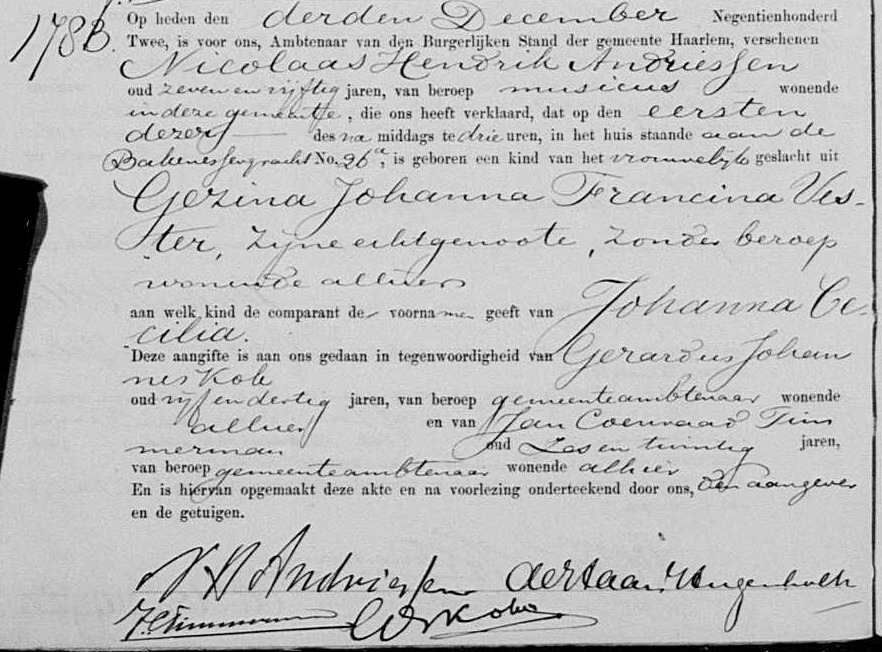 1783.
Op heden den derden December Negentienhonderd
Twee, is voor ons, Ambtenaar van den Burgerlijken Stand der gemeente Haarlem, verschenen
Nicolaas Hendrik Andriessen
oud zeven en vijftig jaren, van beroep musicus wonende
in deze gemeente, die ons heeft verklaard, dat op den eersten
dezer des na middags te drie uren, in het huis staande aan de
Bakenessergracht No. 26a, is geboren een kind van het vrouwelijk geslacht uit
Gezina Johanna Francina Ves-
ter, zijne echtgenoote, zonder beroep
wonende alhier
aan welk kind de comparant de voornamen geeft van Johanna Ce-
cilia.
Deze aangifte is aan ons gedaan in tegenwoordigheid van Gerardus Johan
nes Kok
oud vijf en dertig jaren, van beroep gemeenteambtenaar wonende
alhier en van Jan Coenraad Tim
merman oud zes en twintig jaren,
van beroep gemeenteambtenaar wonende alhier
En is hiervan opgemaakt deze akte en na voorlezing onderteekend door ons, den aangever
en de getuigen.
N H Andriessen
J C Timmerman